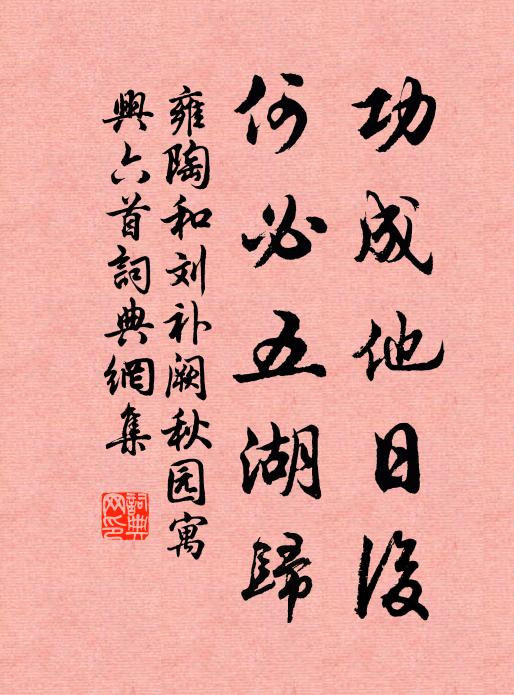 功成他日後
何必五湖歸
雍陶和刘补阙秋园寓
興六首詞典網集
詞典网印